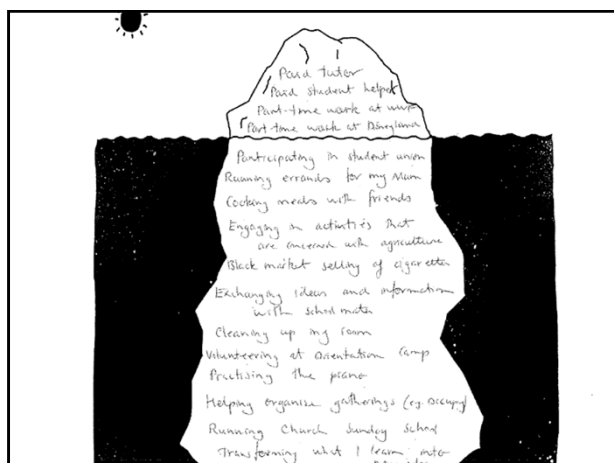 Paid tutor
Paid student helper
Part-time work at
Part-time work at Disneyland
Participating in student union
Running errands for my Mum
Cooking meals with friends
Engaging in activities that
are concerned with agriculture
Black market selling of cigarettes
Exchanging ideas and information
with school mates
Cleaning up my room
Volunteering at Orientation Camp
Practising the piano
Helping organize gatherings (eg. Occupy)
Running Church Sunday School
Transforming what I learn into